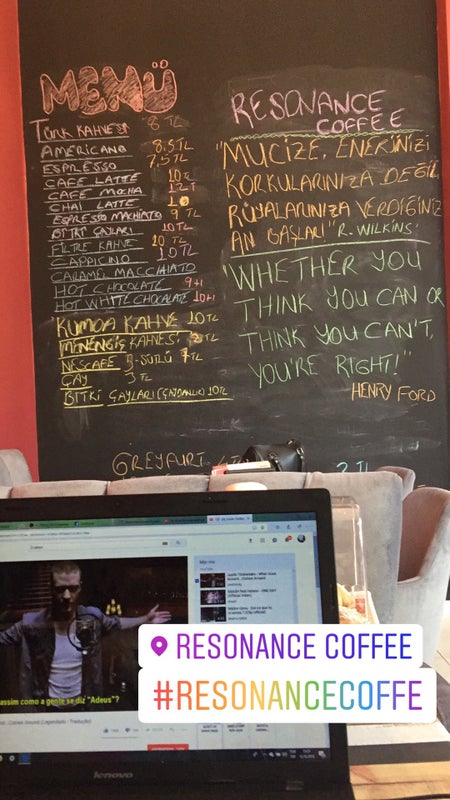 MENÜ
TÜRK KAHVESİ 8 TL
AMERICANO 8,5 TL
ESPRESSO 7,5 TL
CAFE LATTE 10 TL
CAFE MOCHA
CHAI LATTE
ESPRESSO MACHIATO 9 TL
BİTKİ ÇAYLARI 10 TL
FİLTRE KAHVE 10 TL
CAPPICINO 10 TL
CARAMEL MACCHIATO
HOT CHOCOLATE 9+1
HOT WHITE CHOCOLATE 10+1
KUMDA KAHVE 10 TL
MENENGİÇ KAHVESİ
NESCAFE 5-SÜTLÜ 7 TL
ÇAY 3 TL
BİTKİ ÇAYLARI (ÇAYDANLIK) 10 TL
RESONANCE
COFFEE
"MUCİZE, ENERJİNİZİ
KORKULARINIZA DEĞİL,
RÜYALARINIZA VERDİĞİNİZ
AN BAŞLAR!" R. WILKINS
"WHETHER YOU
THINK YOU CAN OR
THINK YOU CAN'T,
YOU'RE RIGHT!"
HENRY FORD
GREYFURT
assim como a gente se diz "Adeus"?
lenovo
RESONANCE COFFEE
#RESONANCECOFFE